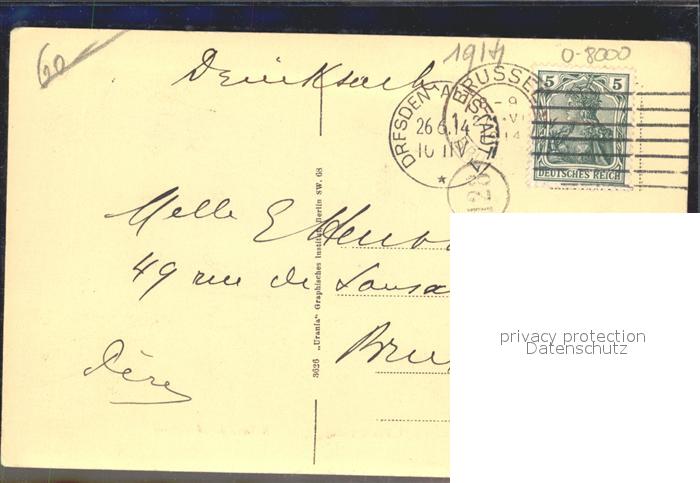 60
1914
0-8000
Drucksache
BRUSSE
5 5
DRESDEN-ALTSTADT
26.6.14
10-11 V
9
VI
14
DEUTSCHES REICH
Melle E
49 rue de Lausa
Bru
Père
3626 „Urania" Graphisches Institut Berlin SW. 68
privacy protection
Datenschutz